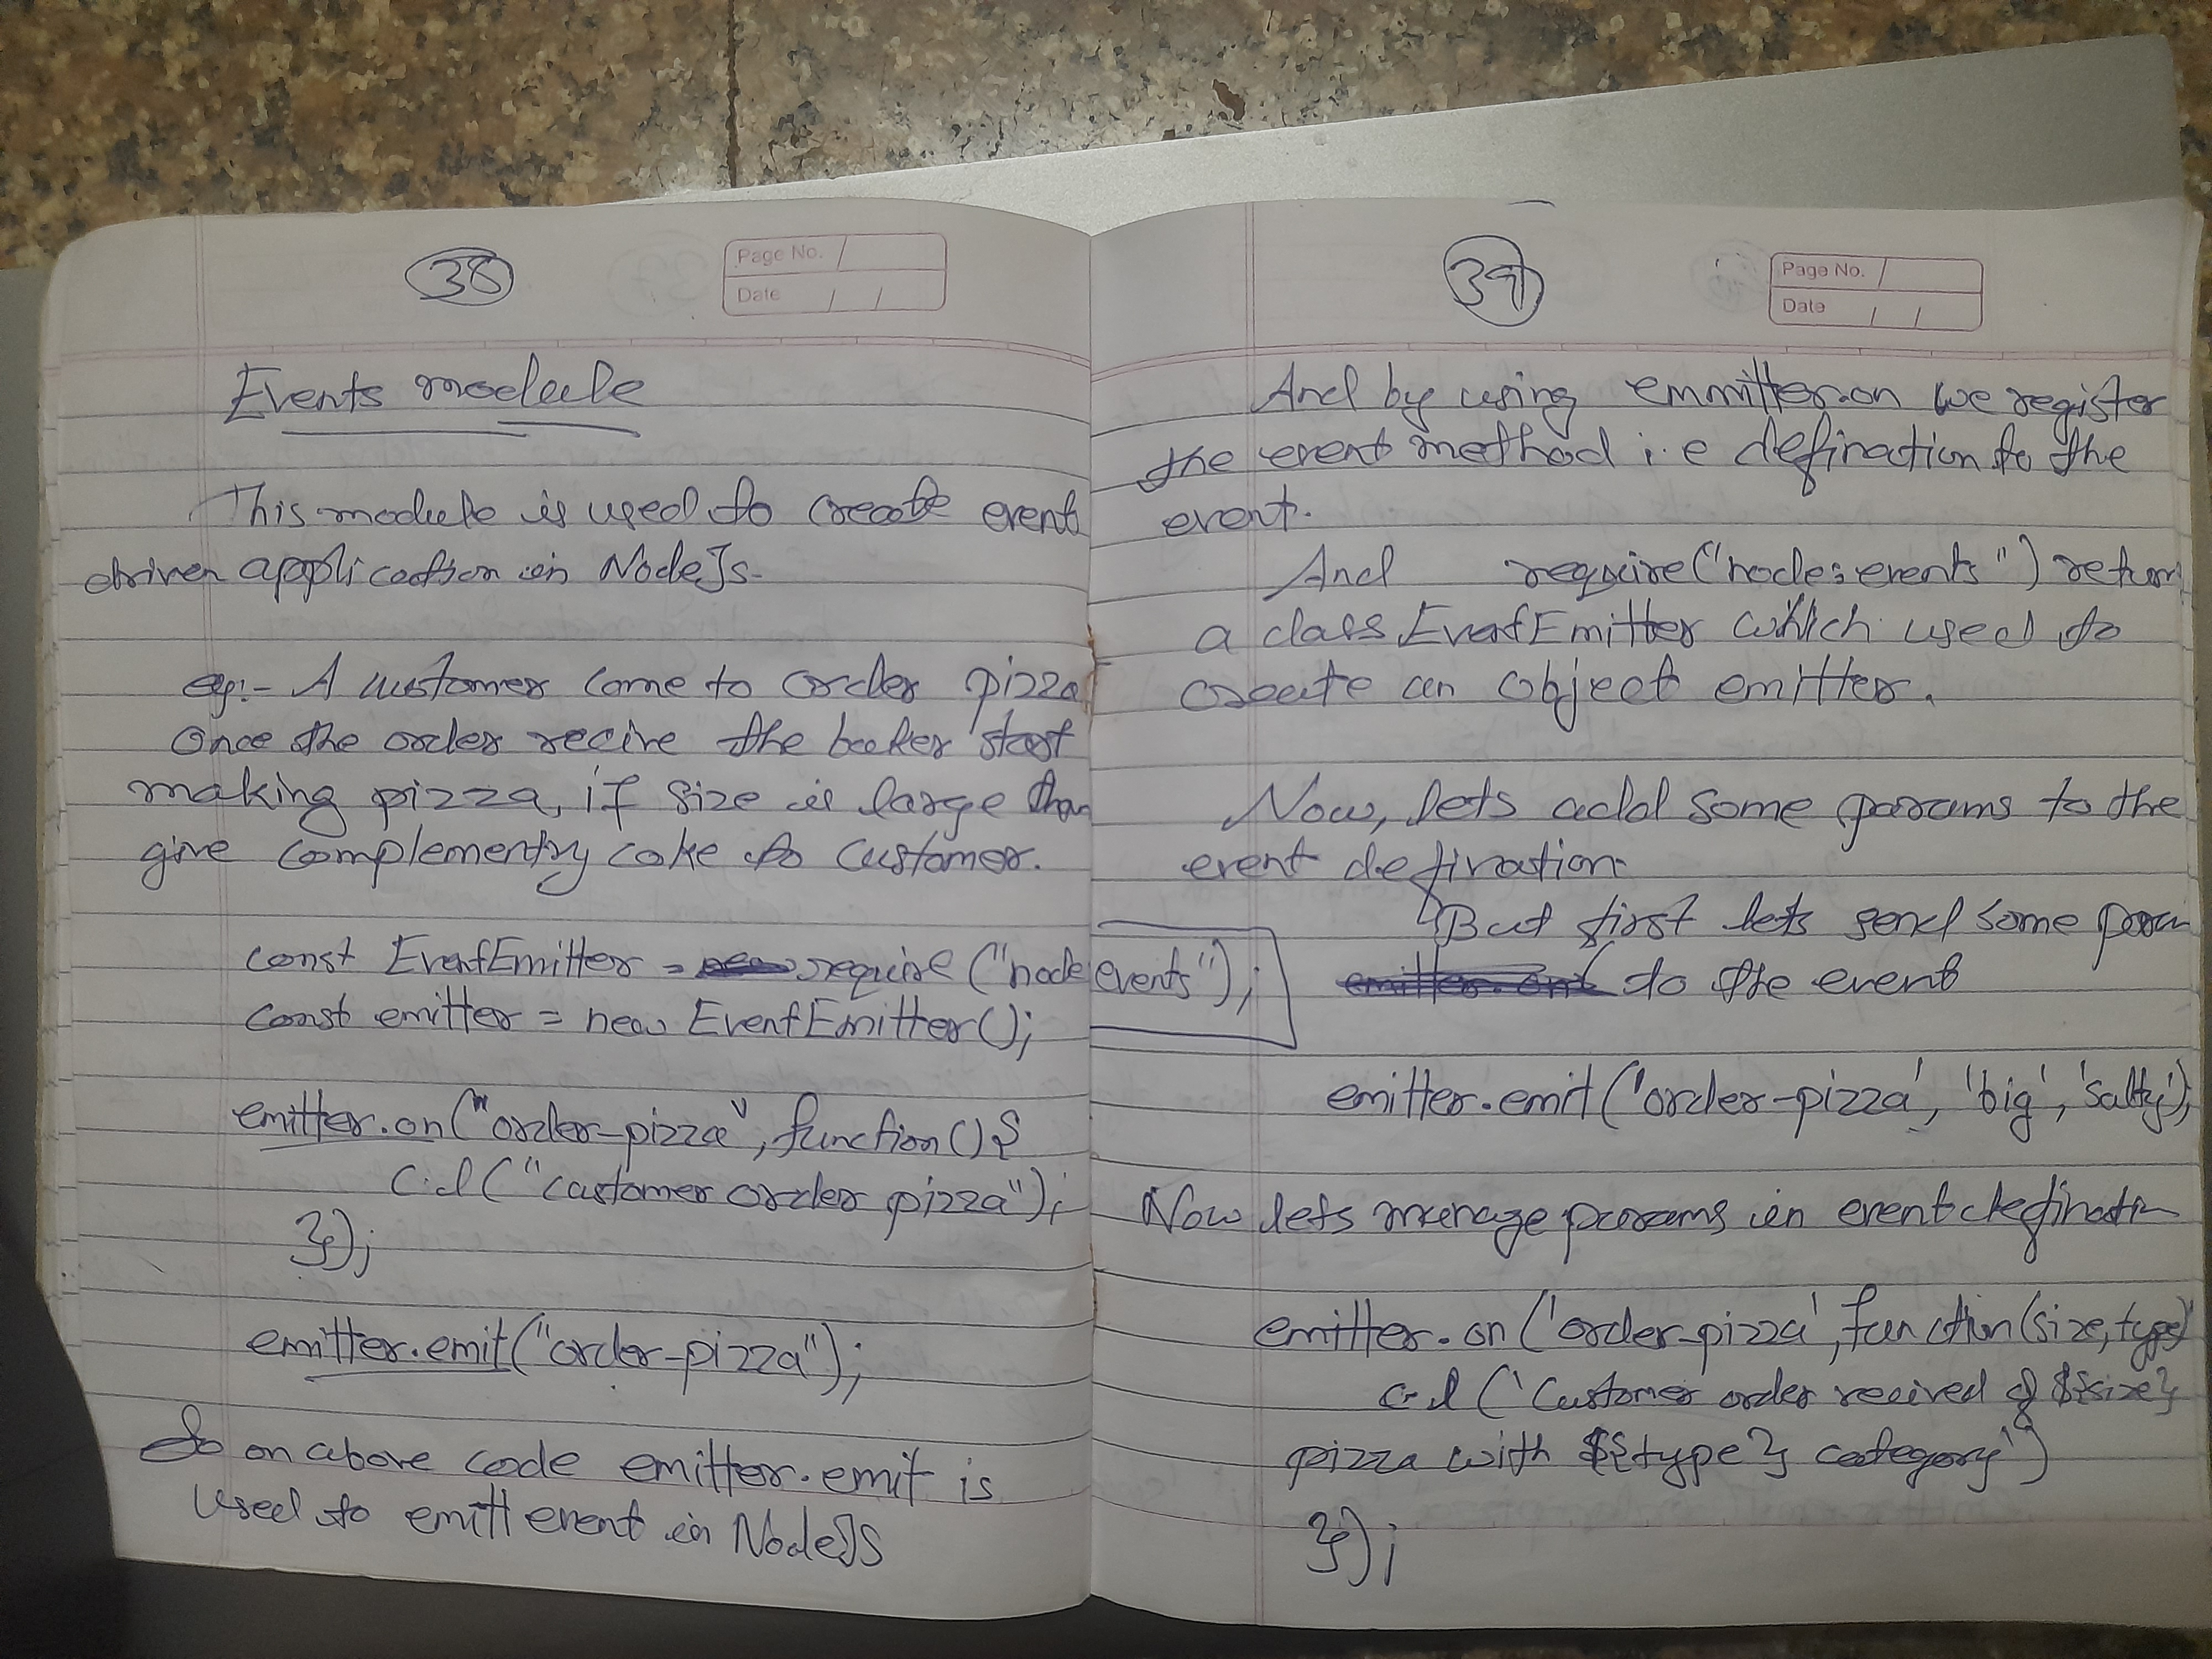 38
Page No.
Date / /
Events module
This module is used to create event
driven application in NodeJs.
eg:- A customer come to order pizza
Once the order recive the baker start
making pizza, if size is large than
give complementry coke to customer.
const EventEmitter = require ("node:events");
const emitter = new EventEmitter();
emitter.on("order-pizza", function(){
c.l("customer order pizza");
});
emitter.emit("order-pizza");
So on above code emitter.emit is
used to emitt event in NodeJS
39
Page No.
Date / /
And by using emmitter.on we register
the event method i.e defination to the
event.
And require("node:events") return
a class EventEmitter which used to
create an object emitter.
Now, lets add some params to the
event defination.
But first lets send some param
to the event
emitter.emit('order-pizza', 'big', 'salty');
Now lets manage params in event defination
emitter.on('order-pizza', function(size, type)
c.l('Customer order recived of ${size}
pizza with ${type} category')
});